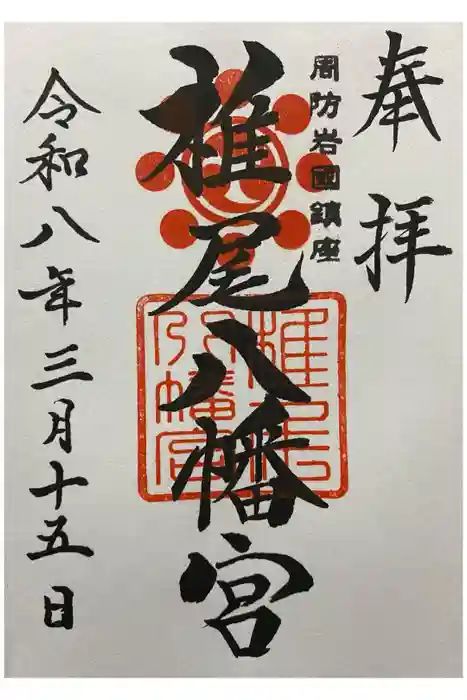 奉拝
周防岩国鎮座
椎尾八幡宮
椎尾八幡宮
令和八年三月十五日